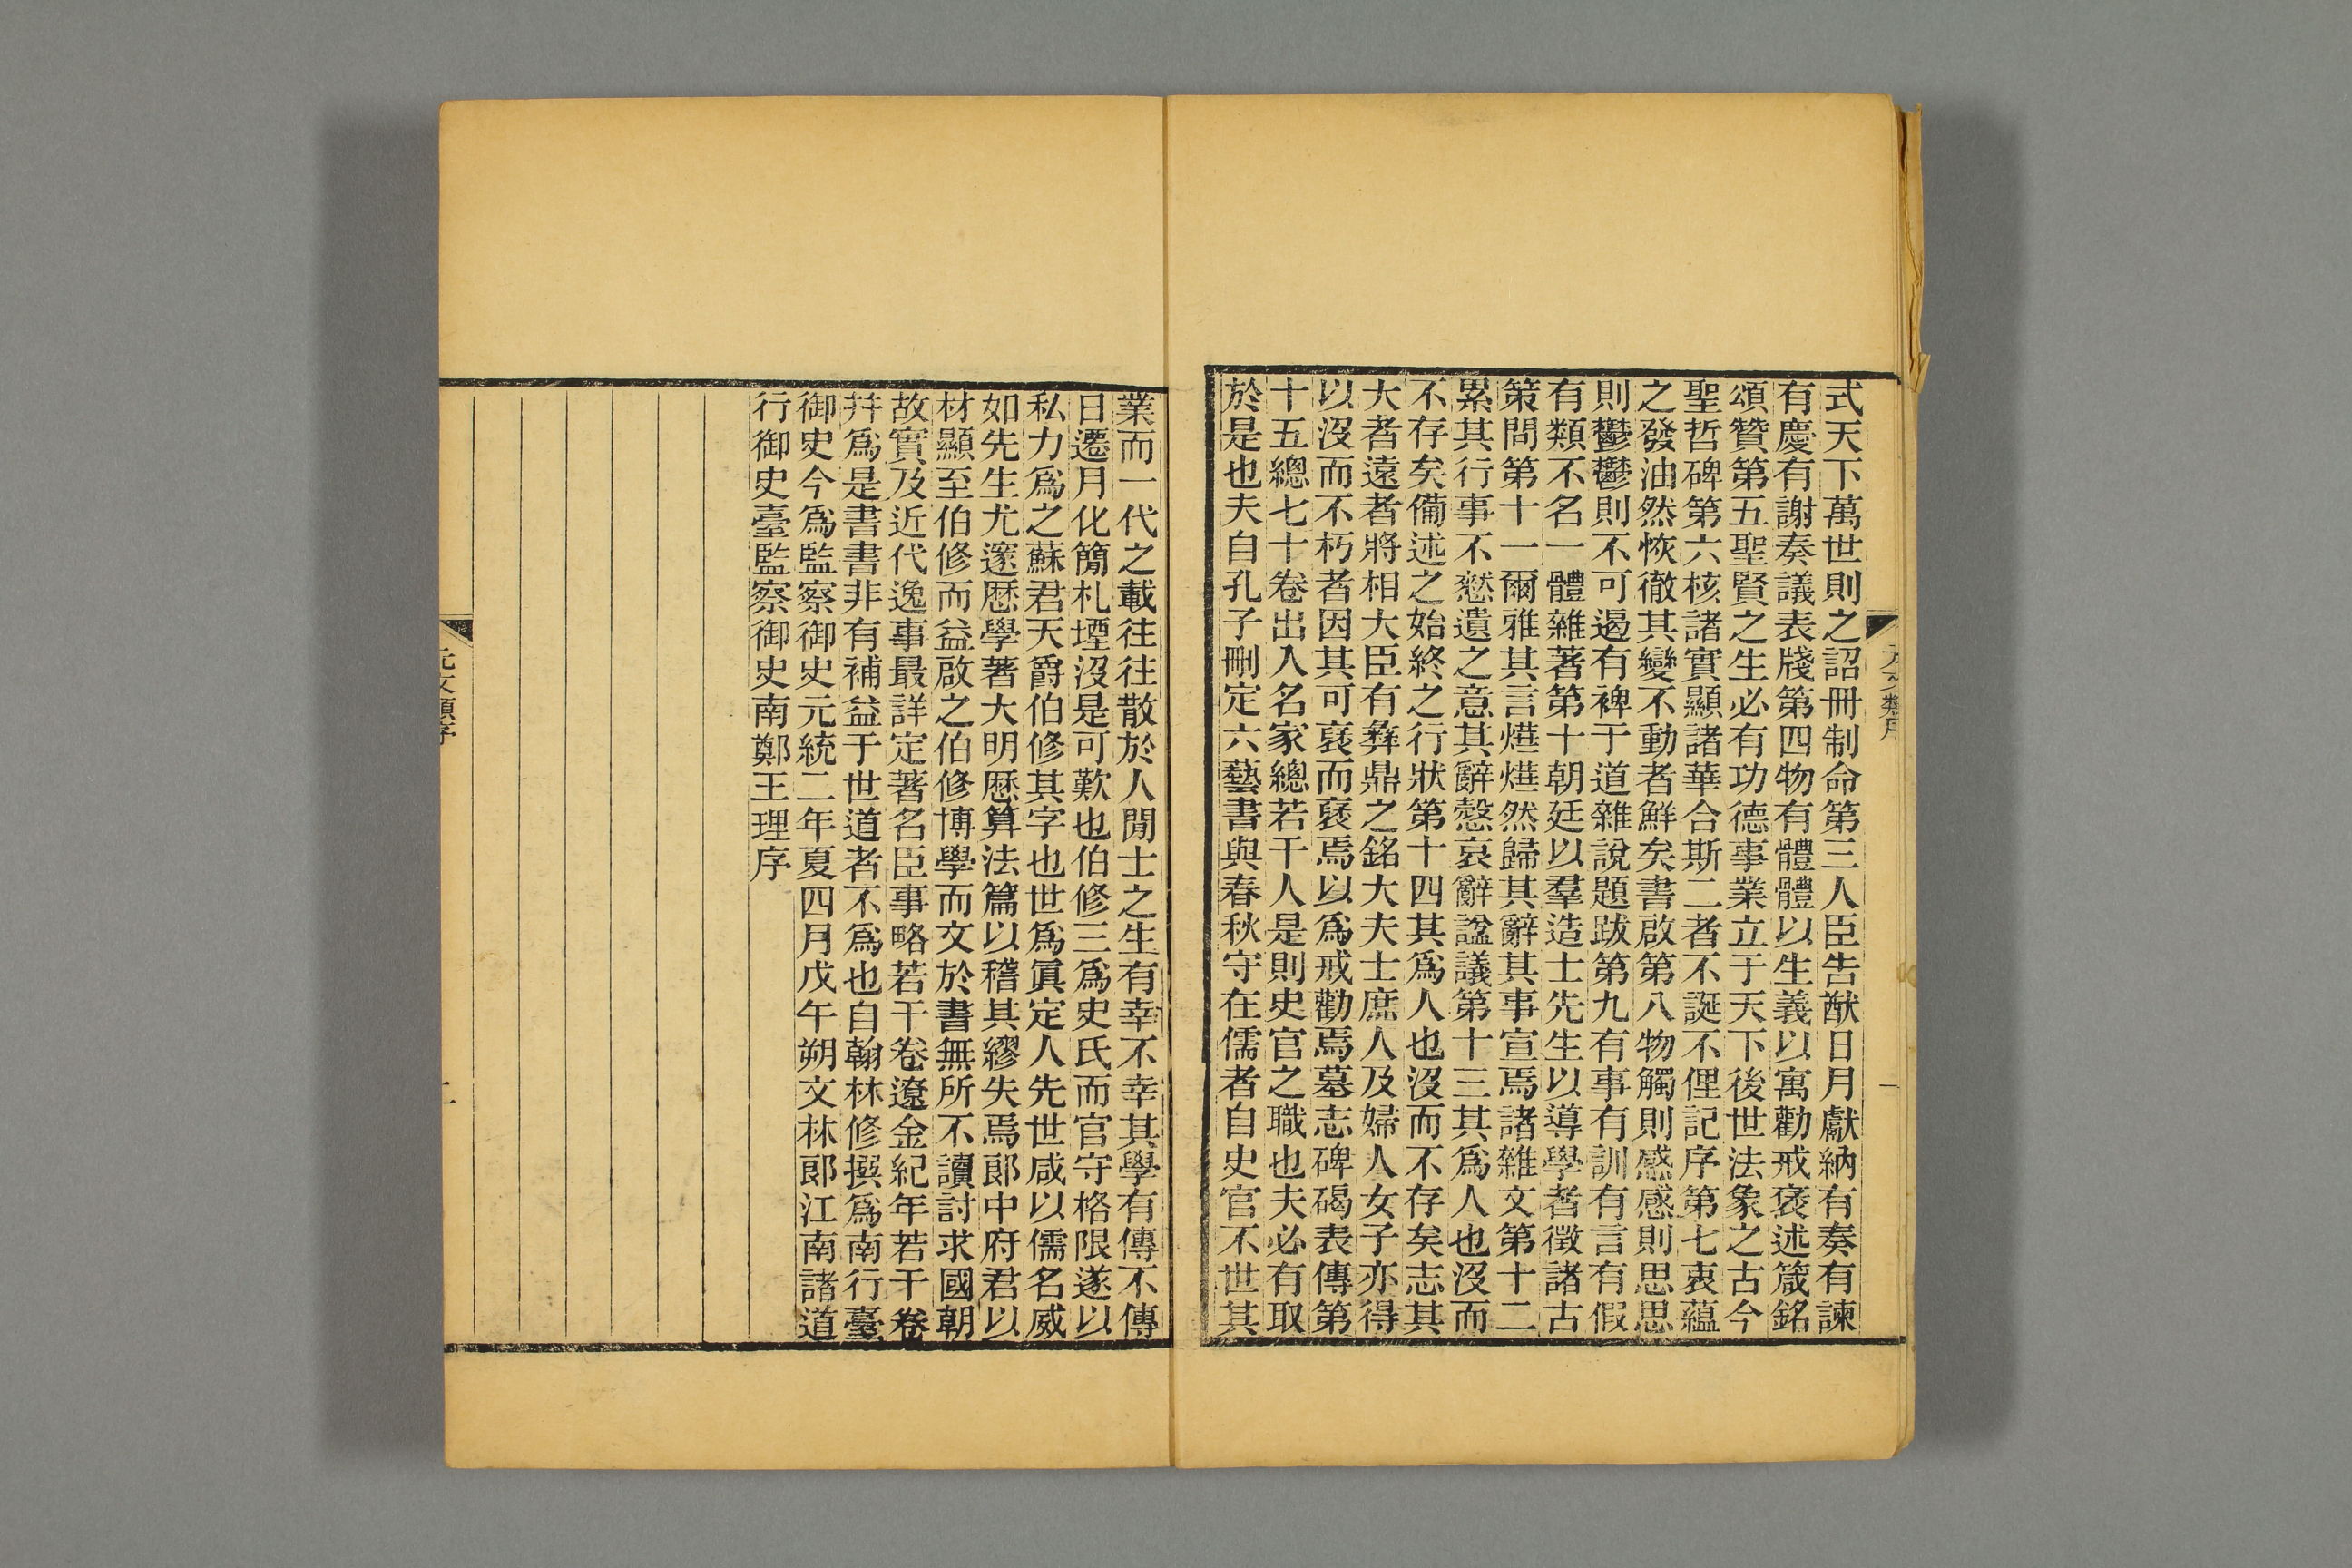 元文類序
一
式天下萬世則之詔冊制命第三人臣告猷日月獻納有奏有諫
有慶有謝奏議表牋第四物有體體以生義以寓勸戒褒述箴銘
頌贊第五聖賢之生必有功德事業立于天下後世法象之古今
聖哲碑第六核諸實顯諸華合斯二者不誕不俚記序第七衷蘊
之發油然恢徹其變不動者鮮矣書啟第八物觸則感感則思思
則鬱鬱則不可遏有裨于道雜說題跋第九有事有訓有言有假
有類不名一體雜著第十朝廷以羣造士先生以導學者徵諸古
策問第十一爾雅其言煒煒然歸其辭其事宣焉諸雜文第十二
累其行事不憖遺之意其辭愨哀辭諡議第十三其爲人也沒而
不存矣備述之始終之行狀第十四其爲人也沒而不存矣志其
大者遠者將相大臣有彝鼎之銘大夫士庶人及婦人女子亦得
以沒而不朽者因其可裒而裒焉以爲戒勸焉墓志碑碣表傳第
十五總七十卷出入名家總若干人是則史官之職也夫必有取
於是也夫自孔子刪定六藝書與春秋守在儒者自史官不世其
業而一代之載往往散於人閒士之生有幸不幸其學有傳不傳
日遷月化簡札堙沒是可歎也伯修三爲史氏而官守格限遂以
私力爲之蘇君天爵伯修其字也世爲眞定人先世咸以儒名威
如先生尤邃歷學著大明歷算法篇以稽其繆失焉郎中府君以
材顯至伯修而益啟之伯修博學而文於書無所不讀討求國朝
故實及近代逸事最詳定著名臣事略若干卷遼金紀年若干卷
幷爲是書書非有補益于世道者不爲也自翰林修撰爲南行臺
御史今爲監察御史元統二年夏四月戊午朔文林郎江南諸道
行御史臺監察御史南鄭王理序
元文類序
二